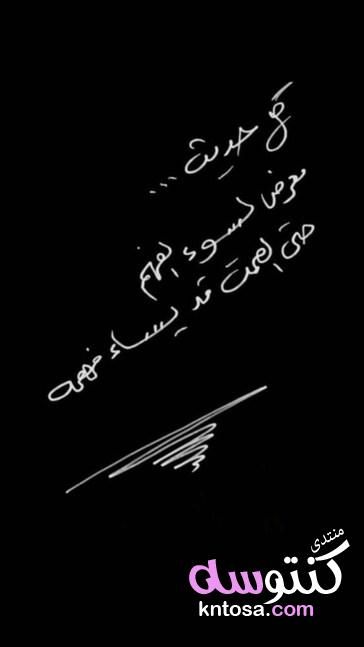 كل حديث ...
معرض لسوء الفهم
حتى الصمت قد يساء فهمه
منتدى
كنتوسه
kntosa.com